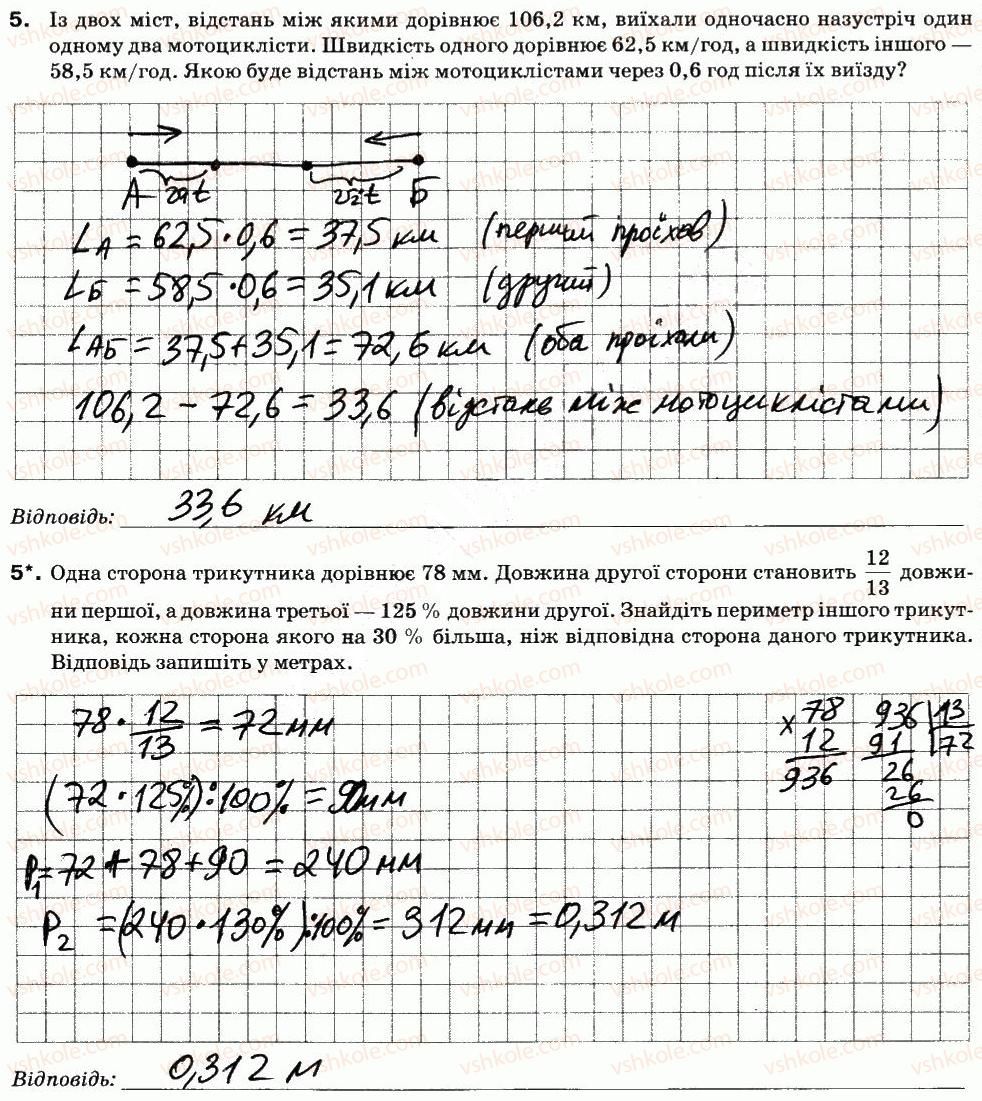 5. Із двох міст, відстань між якими дорівнює 106,2 км, виїхали одночасно назустріч один
одному два мотоциклісти. Швидкість одного дорівнює 62,5 км/год, а швидкість іншого —
58,5 км/год. Якою буде відстань між мотоциклістами через 0,6 год після їх виїзду?
А v₁t v₂t Б
L_А = 62,5 · 0,6 = 37,5 км (перший проїхав)
L_Б = 58,5 · 0,6 = 35,1 км (другий)
L_АБ = 37,5 + 35,1 = 72,6 км (оба проїхали)
106,2 − 72,6 = 33,6 (відстань між мотоциклістами)
Відповідь: 33,6 км
5*. Одна сторона трикутника дорівнює 78 мм. Довжина другої сторони становить 12/13 довжи-
ни першої, а довжина третьої — 125 % довжини другої. Знайдіть периметр іншого трикут-
ника, кожна сторона якого на 30 % більша, ніж відповідна сторона даного трикутника.
Відповідь запишіть у метрах.
78 · 12/13 = 72 мм
(72 · 125%) : 100% = 90мм
P₁ = 72 + 78 + 90 = 240 мм
P₂ = (240 · 130%) : 100% = 312 мм = 0,312 м
× 78
12
936
936 | 13
91 | 72
26
26
0
Відповідь: 0,312 м
vshkole.com